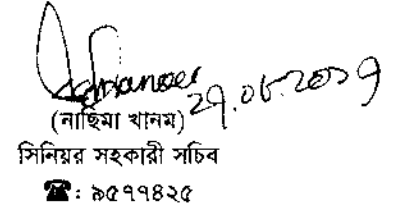 29.06.2009
(নাছিমা খানম)
সিনিয়র সহকারী সচিব
☎: ৯৫৭৭৪২৫